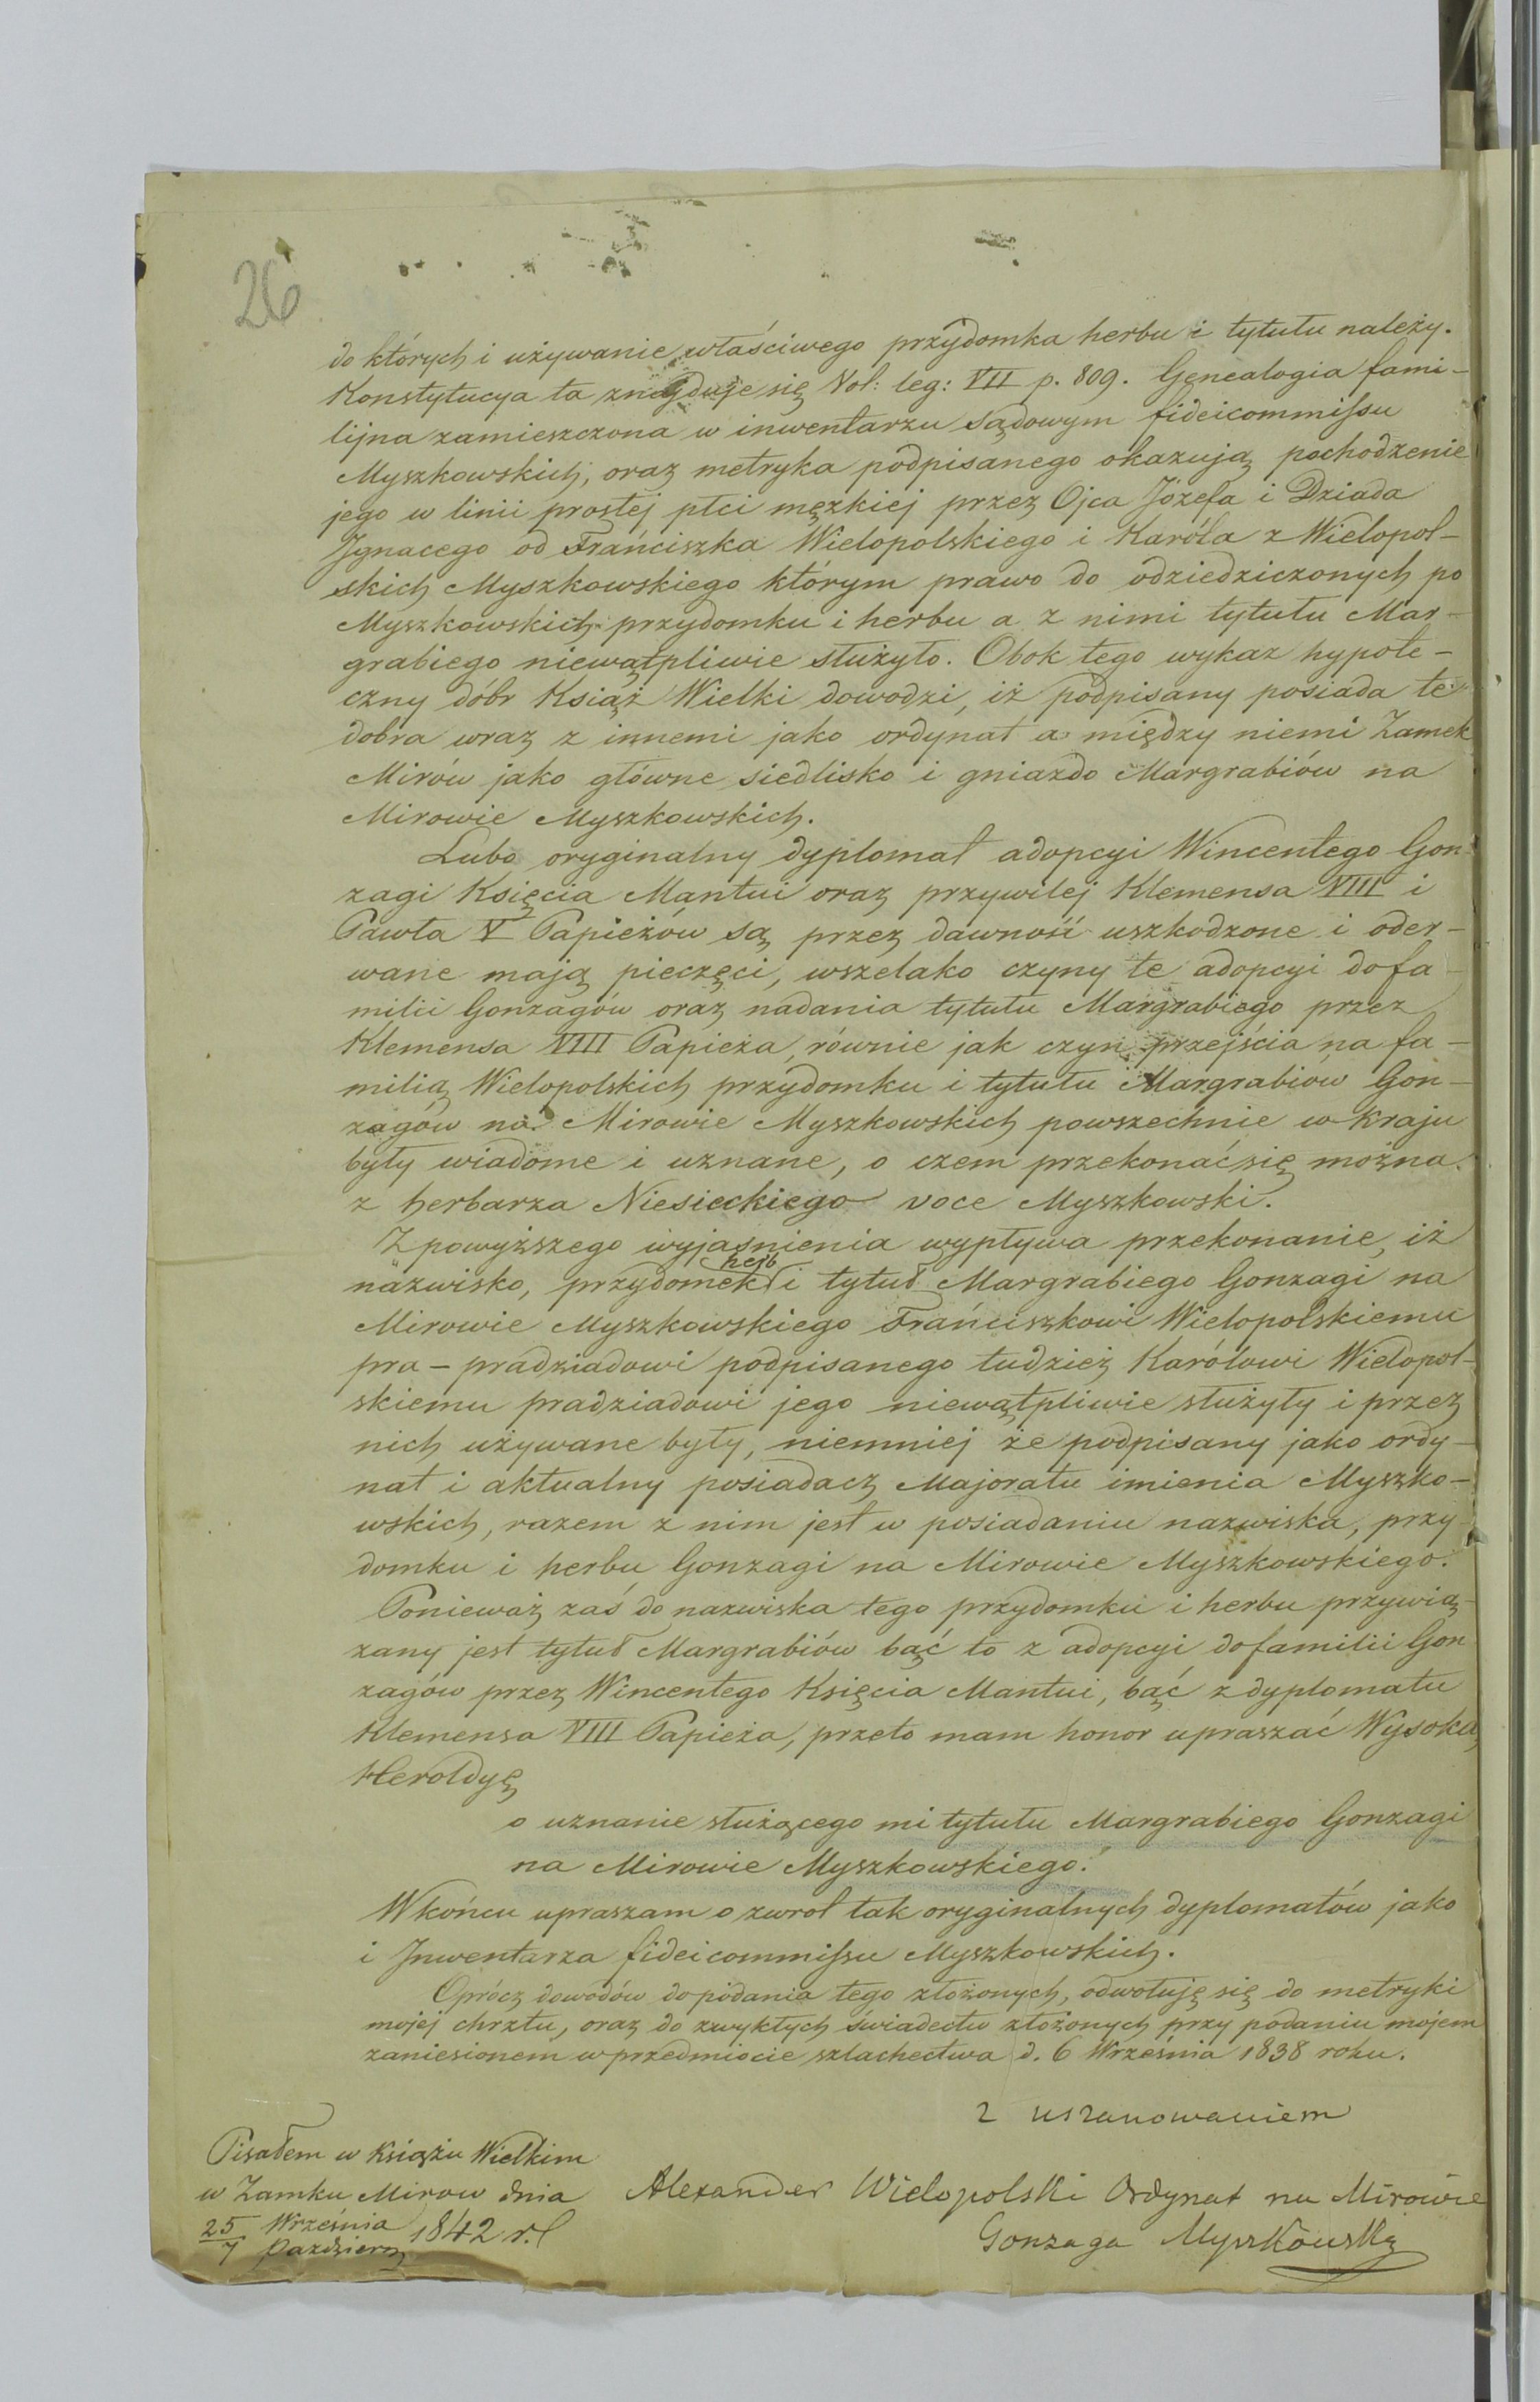 26
do których i używanie właściwego przydomka herbu i tytułu należy.
Konstytucya ta znajduje się Vol: leg: VII p. 809. Genealogia fami-
lijna zamieszczona w inwentarzu sądowym fideicommissu
Myszkowskich, oraz metryka podpisanego okazują pochodzenie
jego w linii prostej płci męzkiej przez Ojca Józefa i Dziada
Ignacego od Frańciszka Wielopolskiego i Karóla z Wielopol-
skich Myszkowskiego którym prawo do odziedziczonych po
Myszkowskich przydomku i herbu a z nimi tytułu Mar-
grabiego niewątpliwie służyło. Obok tego wykaz hypote-
czny dóbr Książ Wielki dowodzi, iż podpisany posiada te
dobra wraz z innemi jako ordynat a między niemi Zamek
Mirów jako główne siedlisko i gniazdo Margrabiów na
Mirowie Myszkowskich.
Lubo oryginalny dyplomat adopcyi Wincentego Gon-
zagi Księcia Mantui oraz przywilej Klemensa VIII i
Pawła V Papieżów są przez dawność uszkodzone i oder-
wane mają pieczęci, wszelako czyny te adopcyi do fa-
milii Gonzagów oraz nadania tytułu Margrabiego przez
Klemensa VIII Papieża, równie jak czyn przejścia na fa-
milią Wielopolskich przydomku i tytułu Margrabiow Gon-
zagów na Mirowie Myszkowskich powszechnie w kraju
były wiadome i uznane, o czem przekonać się można
z herbarza Niesieckiego voce Myszkowski.
Z powyższego wyjasnienia wypływa przekonanie, iż
herb
nazwisko, przydomek i tytuł Margrabiego Gonzagi na
Mirowie Myszkowskiego Frańciszkowi Wielopolskiemu
pra-pradziadowi podpisanego tudzież Karólowi Wielopol-
skiemu pradziadowi jego niewątpliwie służyły i przez
nich używane były, niemniej że podpisany jako ordy-
nat i aktualny posiadacz Majoratu imienia Myszko-
wskich, razem z nim jest w posiadaniu nazwiska, przy-
domku i herbu Gonzagi na Mirowie Myszkowskiego.
Ponieważ zaś do nazwiska tego przydomku i herbu przywią-
zany jest tytuł Margrabiów bąć to z adopcyi do familii Gon
zagów przez Wincentego Księcia Mantui, bąć z dyplomatu
Klemensa VIII Papieża, przeto mam honor upraszać Wysoką
Heroldyę
o uznanie służącego mi tytułu Margrabiego Gonzagi
na Mirowie Myszkowskiego.
W końcu upraszam o zwrot tak oryginalnych dyplomatów jako
i Inwentarza fideicommissu Myszkowskich.
Oprócz dowodów do podania tego złożonych, odwołuję się do metryki
mojej chrztu, oraz do zwykłych świadectw złożonych przy podaniu mojem
zaniesionem w przedmiocie szlachectwa d. 6 Września 1838 roku.
z uszanowaniem
Pisałem w Książu Wielkim
w Zamku Mirow dnia
25/7 Września/Paździer. 1842 r.
Alexander Wielopolski Ordynat na Mirowie
Gonzaga Myszkowski